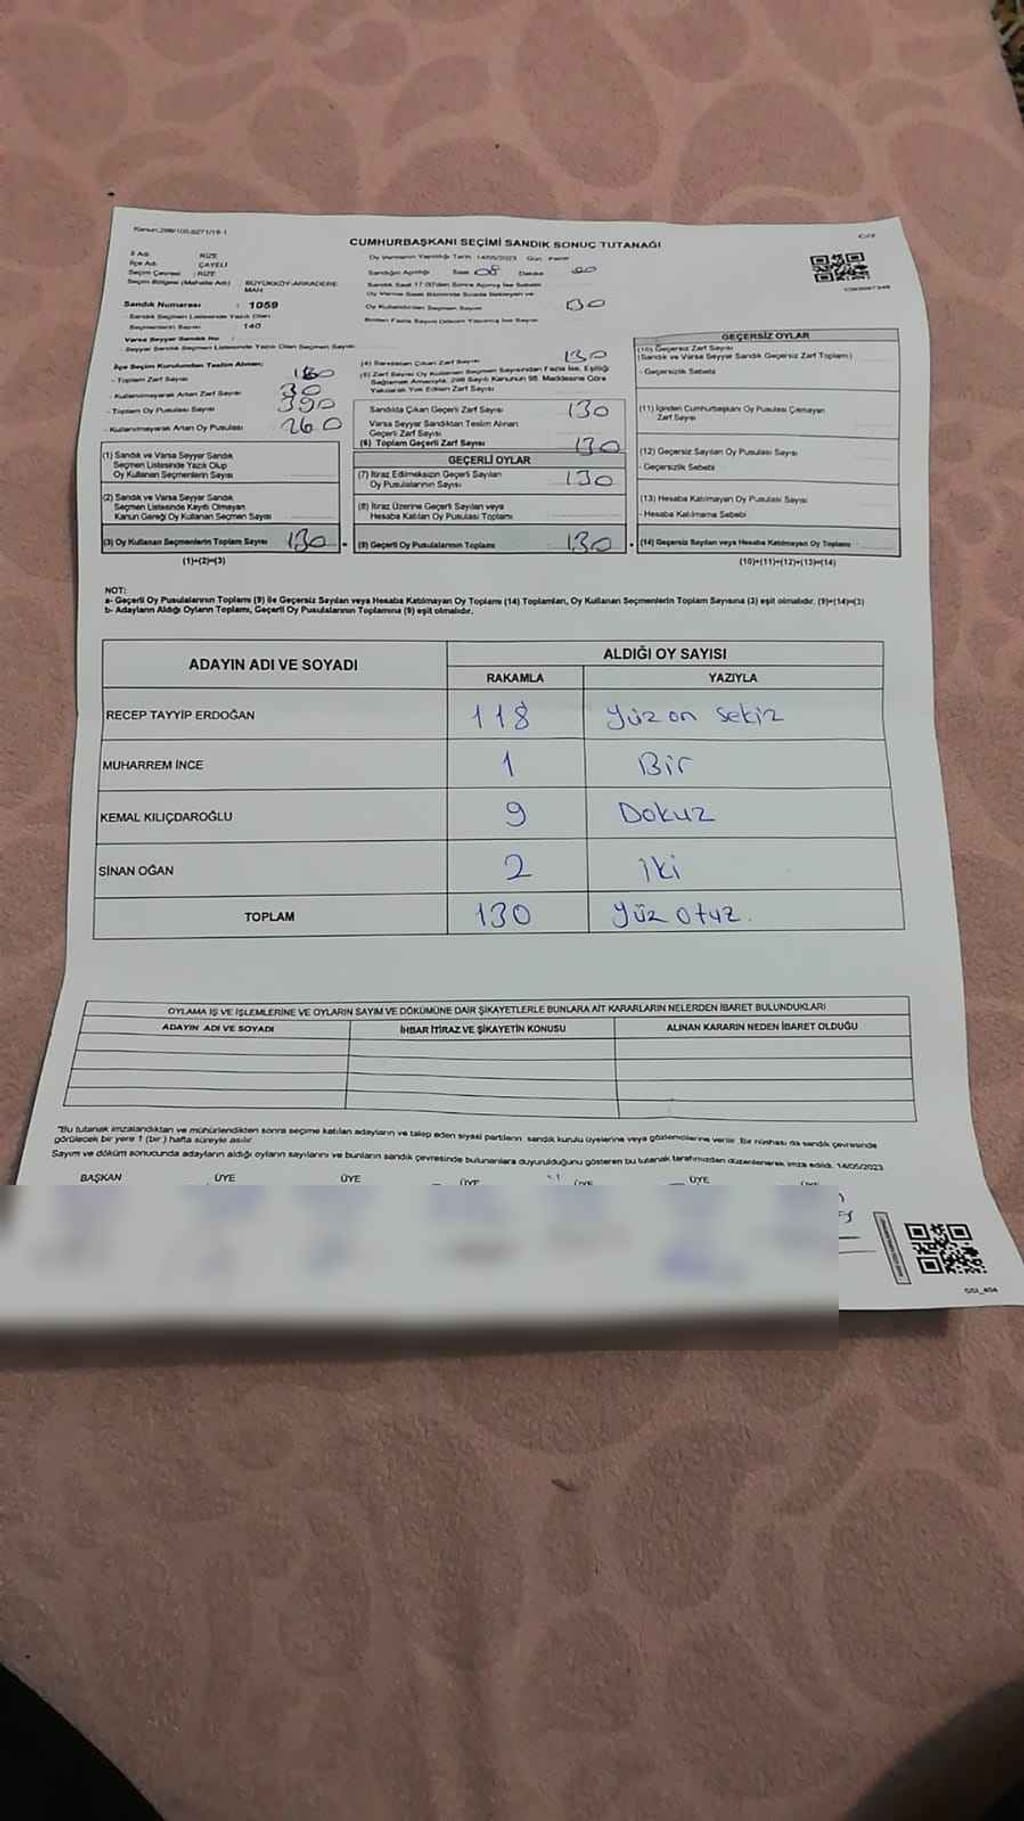 CUMHURBAŞKANI SEÇİMİ SANDIK SONUÇ TUTANAĞI
İl Adı : RİZE
İlçe Adı : ÇAYELİ
Seçim Çevresi : RİZE
Seçim Bölgesi (Mahalle Adı) : BÜYÜKKÖY-ARKADERE MAH.
Sandık Numarası : 1059
Sandık Seçmen Listesinde Yazılı Olan
Seçmenlerin Sayısı : 140
Varsa Seyyar Sandık No :
Seyyar Sandık Seçmen Listesinde Yazılı Olan Seçmen Sayısı
Oy Vermenin Yapıldığı Tarih: 14/05/2023 Gün: Pazar
Sandığın Açıldığı Saat 08 Dakika 00
130
İlçe Seçim Kurulundan Teslim Alınan;
- Toplam Zarf Sayısı
- Kullanılmayarak Artan Zarf Sayısı 30
- Toplam Oy Pusulası Sayısı 390
- Kullanılmayarak Artan Oy Pusulası 260
(1) Sandık ve Varsa Seyyar Sandık
Seçmen Listesinde Yazılı Olup
Oy Kullanan Seçmenlerin Sayısı
(2) Sandık ve Varsa Seyyar Sandık
Seçmen Listesinde Kayıtlı Olmayan
Kanun Gereği Oy Kullanan Seçmen Sayısı
(3) Oy Kullanan Seçmenlerin Toplam Sayısı 130
(1)+(2)=(3)
(4) Sandıktan Çıkan Zarf Sayısı 130
(5) Zarf Sayısı Oy Kullanan Seçmen Sayısından Fazla İse, Eşitliği
Sağlamak Amacıyla, 298 Sayılı Kanunun 98. Maddesine Göre
Yakılarak Yok Edilen Zarf Sayısı
Sandıkta Çıkan Geçerli Zarf Sayısı 130
Varsa Seyyar Sandıktan Teslim Alınan
Geçerli Zarf Sayısı
(6) Toplam Geçerli Zarf Sayısı 130
GEÇERLİ OYLAR
(7) İtiraz Edilmeksizin Geçerli Sayılan
Oy Pusulalarının Sayısı 130
(8) İtiraz Üzerine Geçerli Sayılan veya
Hesaba Katılan Oy Pusulası Toplamı
(9) Geçerli Oy Pusulalarının Toplamı 130
GEÇERSİZ OYLAR
(10) Geçersiz Zarf Sayısı
(Sandık ve Varsa Seyyar Sandık Geçersiz Zarf Toplamı)
- Geçersizlik Sebebi
(11) İçinden Cumhurbaşkanı Oy Pusulası Çıkmayan
Zarf Sayısı
(12) Geçersiz Sayılan Oy Pusulası Sayısı
- Geçersizlik Sebebi
(13) Hesaba Katılmayan Oy Pusulası Sayısı
- Hesaba Katılmama Sebebi
(14) Geçersiz Sayılan veya Hesaba Katılmayan Oy Toplamı
(10)+(11)+(12)+(13)=(14)
NOT:
a- Geçerli Oy Pusulalarının Toplamı (9) ile Geçersiz Sayılan veya Hesaba Katılmayan Oy Toplamı (14) Toplamları, Oy Kullanan Seçmenlerin Toplam Sayısına (3) eşit olmalıdır. (9)+(14)=(3)
b- Adayların Aldığı Oyların Toplamı, Geçerli Oy Pusulalarının Toplamına (9) eşit olmalıdır.
ADAYIN ADI VE SOYADI
ALDIĞI OY SAYISI
RAKAMLA YAZIYLA
RECEP TAYYİP ERDOĞAN 118 Yüz on sekiz
MUHARREM İNCE 1 Bir
KEMAL KILIÇDAROĞLU 9 Dokuz
SİNAN OĞAN 2 iki
TOPLAM 130 Yüz otuz.
OYLAMA İŞ VE İŞLEMLERİNE VE OYLARIN SAYIM VE DÖKÜMÜNE DAİR ŞİKAYETLERLE BUNLARA AİT KARARLARIN NELERDEN İBARET BULUNDUKLARI
ADAYIN ADI VE SOYADI İHBAR İTİRAZ VE ŞİKAYETİN KONUSU ALINAN KARARIN NEDEN İBARET OLDUĞU
"Bu tutanak imzalandıktan ve mühürlendikten sonra seçime katılan adayların ve talep eden siyasi partilerin sandık kurulu üyelerine veya gözlemcilerine verilir. Bir nüshası da sandık çevresinde
görülecek bir yere 1 (bir) hafta süreyle asılır
Sayım ve döküm sonucunda adayların aldığı oyların sayılarını ve bunların sandık çevresinde bulunanlara duyurulduğunu gösteren bu tutanak tarafımızdan düzenlenerek imza edildi. 14/05/2023
BAŞKAN ÜYE ÜYE ÜYE ÜYE ÜYE ÜYE